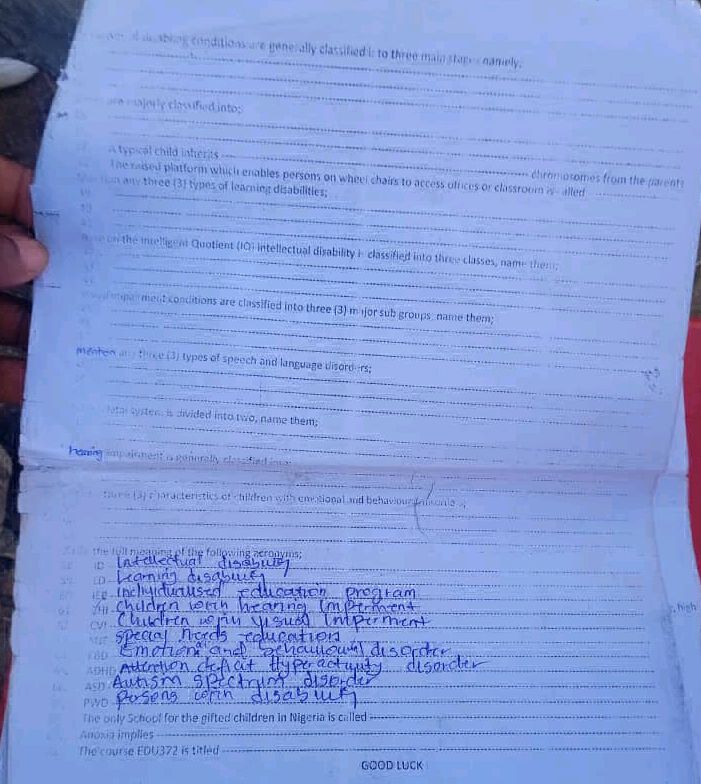 conditions are generally classified into three main stages namely;
are majorly classified into;
A typical child inherits chromosomes from the parents
The raised platform which enables persons on wheel chairs to access offices or classroom is called
any three (3) types of learning disabilities;
on the Intelligent Quotient (IQ) intellectual disability is classified into three classes, name them;
impairment conditions are classified into three (3) major sub groups, name them;
mention any three (3) types of speech and language disorders;
system is divided into two, name them;
hearing impairment is generally classified into;
three (3) characteristics of children with emotional and behavioural
the full meaning of the following acronyms;
ID Intellectual disability
LD Learning disability
IEP Individualised education program
CHI Children with hearing Imperment
, high
CVI Children with visual Imperment
special needs education
EBD Emotional and behavioural disorder
ADHD Attention deficit Hyperactivity disorder
ASD Autism spectrum disorder
PWD Persons with disability
The only School for the gifted children in Nigeria is called
Anoxia implies
The course EDU372 is titled
GOOD LUCK